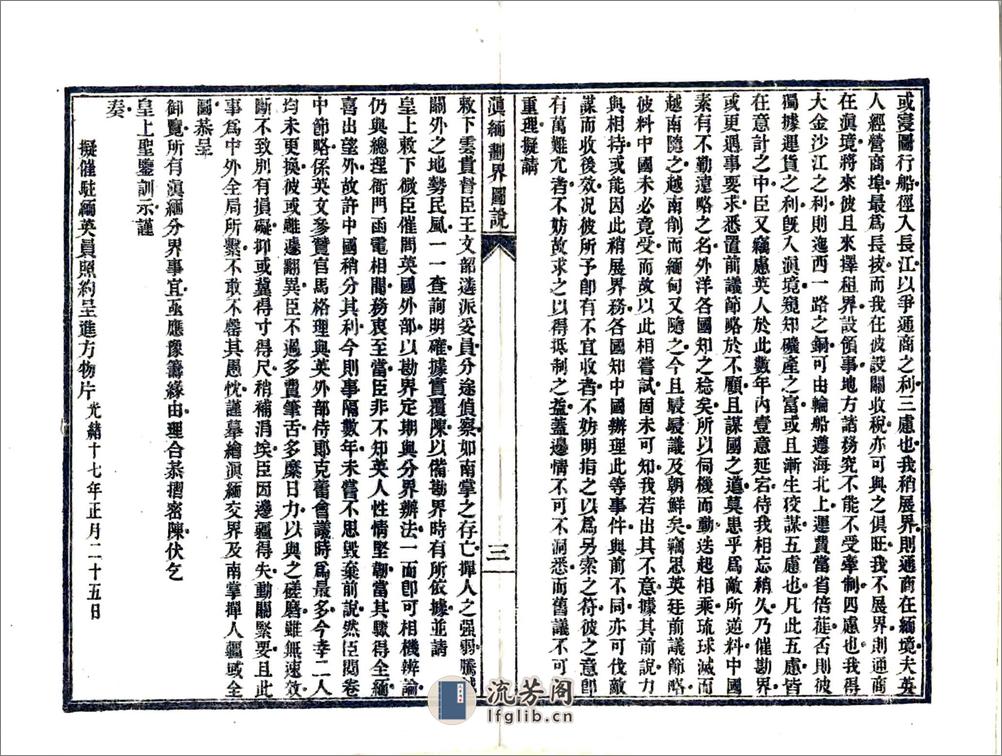 或寖圖行船徑入長江以爭通商之利三慮也我稍展界則通商在緬境夫英
人經營商埠最為長技而我在彼設關收稅亦可與之俱旺我不展界則通商
在滇境將來彼且來擇租界設領事地方諸務究不能不受牽制四慮也我得
大金沙江之利則迤西一路之銅可由輪船遵海北上運費當省倍蓰否則彼
獨據運貨之利既入滇境窺知礦產之富或且漸生狡謀五慮也凡此五慮皆
在意計之中臣又竊慮英人於此數年內壹意延宕待我相忘稍久乃催勘界
或更遇事要求悉置前議節略於不顧且謀國之道莫患乎為敵所逆料中國
素有不勤遠略之名外洋各國知之稔矣所以伺機而動迭起相乘琉球滅而
越南隨之越南削而緬甸又隨之今且駸駸議及朝鮮矣竊思英廷前議節略
彼料中國未必竟受而故以此相嘗試固未可知我若出其不意據其前說力
與相持或能因此稍展界務各國知中國辦理此等事件與前不同亦可伐敵
謀而收後效況彼所予卽有不宜收者不妨明指之以為另索之符彼之意卽
有萬難允者不妨故求之以得抵制之益蓋邊情不可不洞悉而舊議不可不
重理擬請
滇緬劃界圖說
三
敕下雲貴督臣王文韶遴派委員分途偵察如南掌之存亡撣人之强弱騰越
關外之地勢民風一一查詢明確據實覆陳以備勘界時有所依據並請
皇上敕下微臣催問英國外部以勘界定期與分界辦法一面卽可相機辨論
仍與總理衙門函電相閱務衷至當臣非不知英人性情堅韌當其驟得全緬
喜出望外故許中國稍分其利今則事隔數年未嘗不思毀棄前說然臣閱卷
中節略係英文參贊官馬格理與英外部侍郎克蕾會議時為最多今幸二人
均未更換彼或難遽翻異臣不過多費筆舌多縻日力以與之磋磨雖無速效
斷不致別有損礙抑或冀得寸得尺稍補涓埃臣因邊疆得失動關緊要且此
事為中外全局所繫不敢不罄其愚忱謹摹繪滇緬交界及南掌撣人疆域全
圖恭呈
御覽所有滇緬分界事宜亟應豫籌緣由理合恭摺密陳伏乞
皇上聖鑒訓示謹
奏
擬催駐緬英員照約呈進方物片 光緒十七年正月二十五日
流芳阁
lfglib.cn